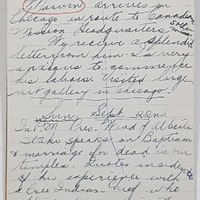 Marvin arrives in
Chicago in route to Canadian
Mission Headquarters.
We receive a splendid
letter from him. Is very
anxious to commence
his labours. Visited large
art gallery in Chicago.
Sun. Sept 22nd
In P.M. Pres. Wood of Alberta
Stake speaks on Baptism
& marriage for dead in our
temples. Quotes incident
of his experience with
a Cree Indian Chief who